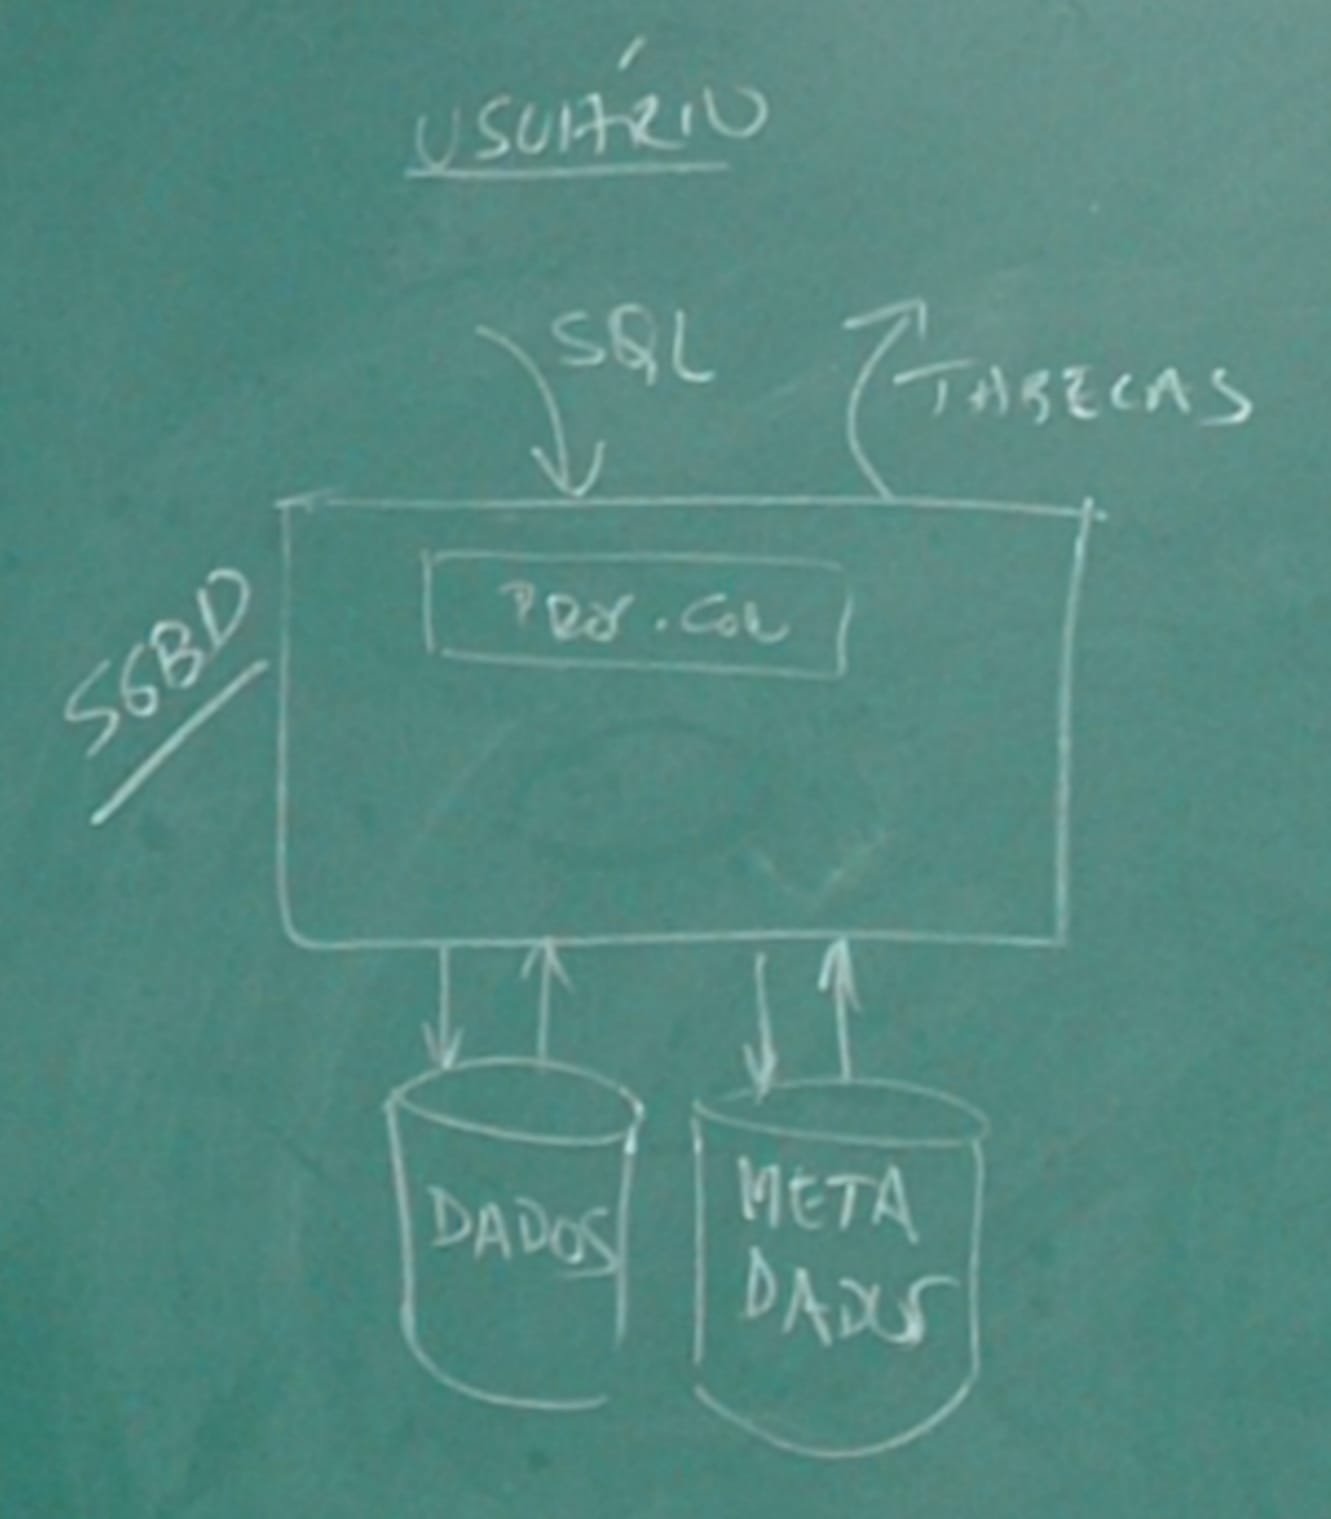 USUÁRIO
SQL
TABELAS
SGBD
DADOS
META
DADOS